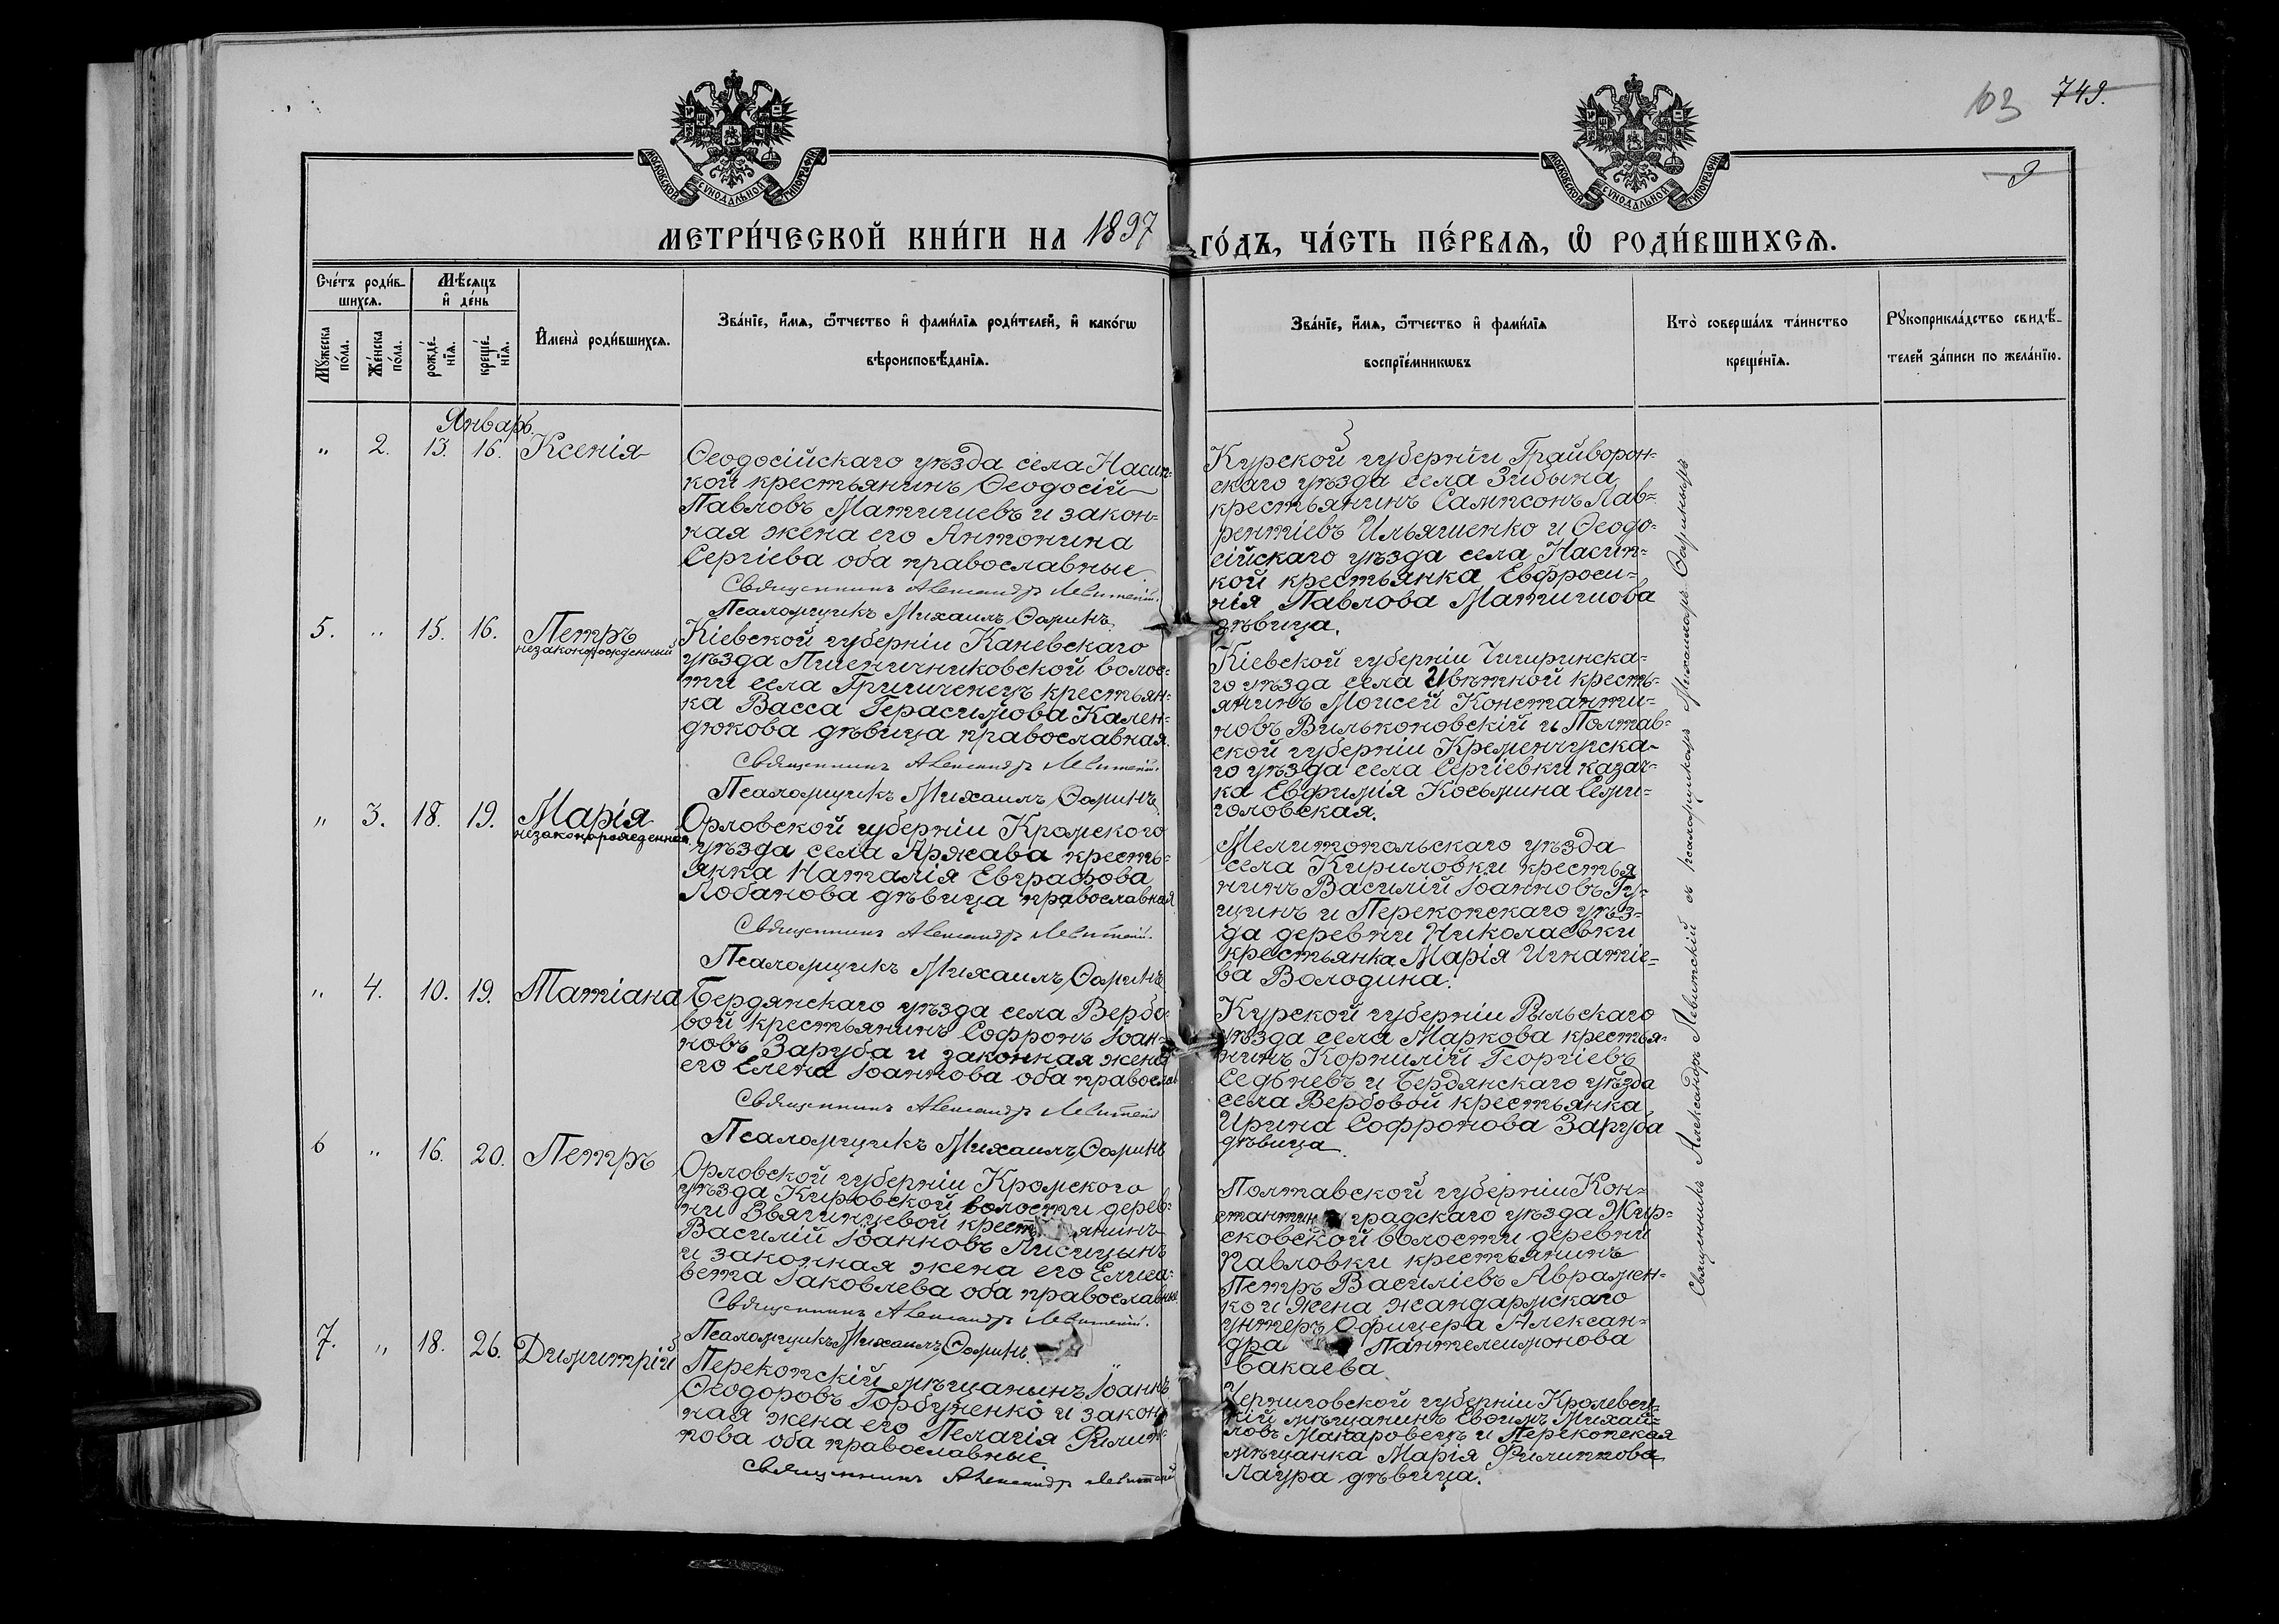 103 749.
9
МОСКОВСКОЙ СУНОДАЛЬНОЙ ТИПОГРАФІИ
МОСКОВСКОЙ СУНОДАЛЬНОЙ ТИПОГРАФІИ
МЕТРИ́ЧЕСКОЙ КНИ́ГИ НА 1897 ГО́ДЪ, ЧА́СТЬ ПЕ́РВАЯ, Ѡ҆ РОДИ́ВШИХСЯ.
Сче́тъ роди́в-
шихся.
Мѣ́сяцъ
и҆ де́нь
Мꙋжеска по́ла.
Же́нска по́ла.
рожде́-
нїя.
креще́-
нїя.
И҆мена̀ роди́вшихся.
Зва́нїе, и҆́мя, ѻ҆́тчество и҆ фами́лїя роди́телей, и҆ како́гѡ
вѣроисповѣ́данїя.
Зва́нїе, и҆́мя, ѻ҆́тчество и҆ фами́лїя
воспрїе́мникѡвъ
Кто̀ соверша́лъ та́инство
креще́нїя.
Рꙋкоприкла́дство свидѣ́-
телей за́писи по жела́нїю.
Январь.
" 2. 13. 16. Ксенія
Ѳеодосійскаго уѣзда села Насип-
кой крестьянинъ Ѳеодосій
Павловъ Матигиевъ и закон-
ная жена его Антонина
Сергіева оба православные
Священникъ Александръ Левитскій.
Псаломщикъ Михаилъ Ѳоминъ
Курской губерніи Грайворон-
скаго уѣзда села Зибина
крестьянинъ Сампсонъ Лав-
рентіевъ Ильяшенко и Ѳеодо-
сійскаго уѣзда села Насип-
кой крестьянка Евфроси-
нія Павлова Матигиова
дѣвица.
5. " 15. 16. Петръ
незаконорожденный
Кіевской губерніи Каневскаго
уѣзда Пшеничниковской волос-
ти села Григиченецъ крестьян-
ка Васса Герасимова Кален-
дюкова дѣвица православная.
Священникъ Александръ Левитскій.
Псаломщикъ Михаилъ Ѳоминъ
Кіевской губерніи Чигиринска-
го уѣзда села Цвѣтной кресть-
янинъ Моисей Константи-
новъ Вильконовскій и Полтав-
ской губерніи Кременчугска-
го уѣзда села Сергіевки казач-
ка Евфимія Косьмина Семи-
головская.
" 3. 18. 19. Марія
незаконорожденная
Орловской губерніи Кромского
уѣзда села Аржава кресть-
янка Наталія Евграфова
Лобанова дѣвица православная
Священникъ Александръ Левитскій.
Псаломщикъ Михаилъ Ѳоминъ
Мелитопольскаго уѣзда
села Кириловки крестья
нинъ Василій Іоанновъ Гу-
щинъ и Перекопскаго уѣз-
да деревни Николаевки
крестьянка Марія Игнатіе-
ва Володина.
" 4. 10. 19. Татіана
Бердянскаго уѣзда села Вербо-
вой крестьянинъ Софронъ Іоан-
новъ Заруба и законная жена
его Елена Іоаннова оба православ
Священникъ Александръ Левитскій
Псаломщикъ Михаилъ Ѳоминъ
Курской губерніи Рыльскаго
уѣзда села Маркова крестья-
нинъ Корнилій Георгіевъ
Седневъ и Бердянскаго уѣзда
села Вербовой крестьянка
Ирина Софронова Заруба
дѣвица.
6 " 16. 20. Петръ
Орловской губерніи Кромского
уѣзда Кировской волости дерев-
ни Звягинцевой крестьянинъ
Василій Іоанновъ Лисицынъ
и законная жена его Елиса-
вета Іаковлева оба православные
Священникъ Александръ Левитскій.
Псаломщикъ Михаилъ Ѳоминъ.
Полтавской губерніи Кон-
стантиноградскаго уѣзда Жир-
сковской волости деревни
Павловки крестьянинъ
Петръ Василіевъ Авраменко
ко и жена жандармскаго
унтеръ Офицера Алексан-
дра Пантелеимонова
Бакаева
7. " 18. 26. Димитрій
Перекопскій мѣщанинъ Іоаннъ
Ѳеодоровъ Горбуненко и закон
ная жена его Пелагія Филип-
пова оба православные
Священникъ Александръ Левитскій
Черниговской губерніи Кролевец-
кій мѣщанинъ Евѳимъ Михай-
ловъ Макаровецъ и Перекопская
мѣщанка Марія Филиппова
Лаура дѣвица.
Священникъ Александръ Левитскій съ псаломщикомъ Михаиломъ Ѳоминымъ